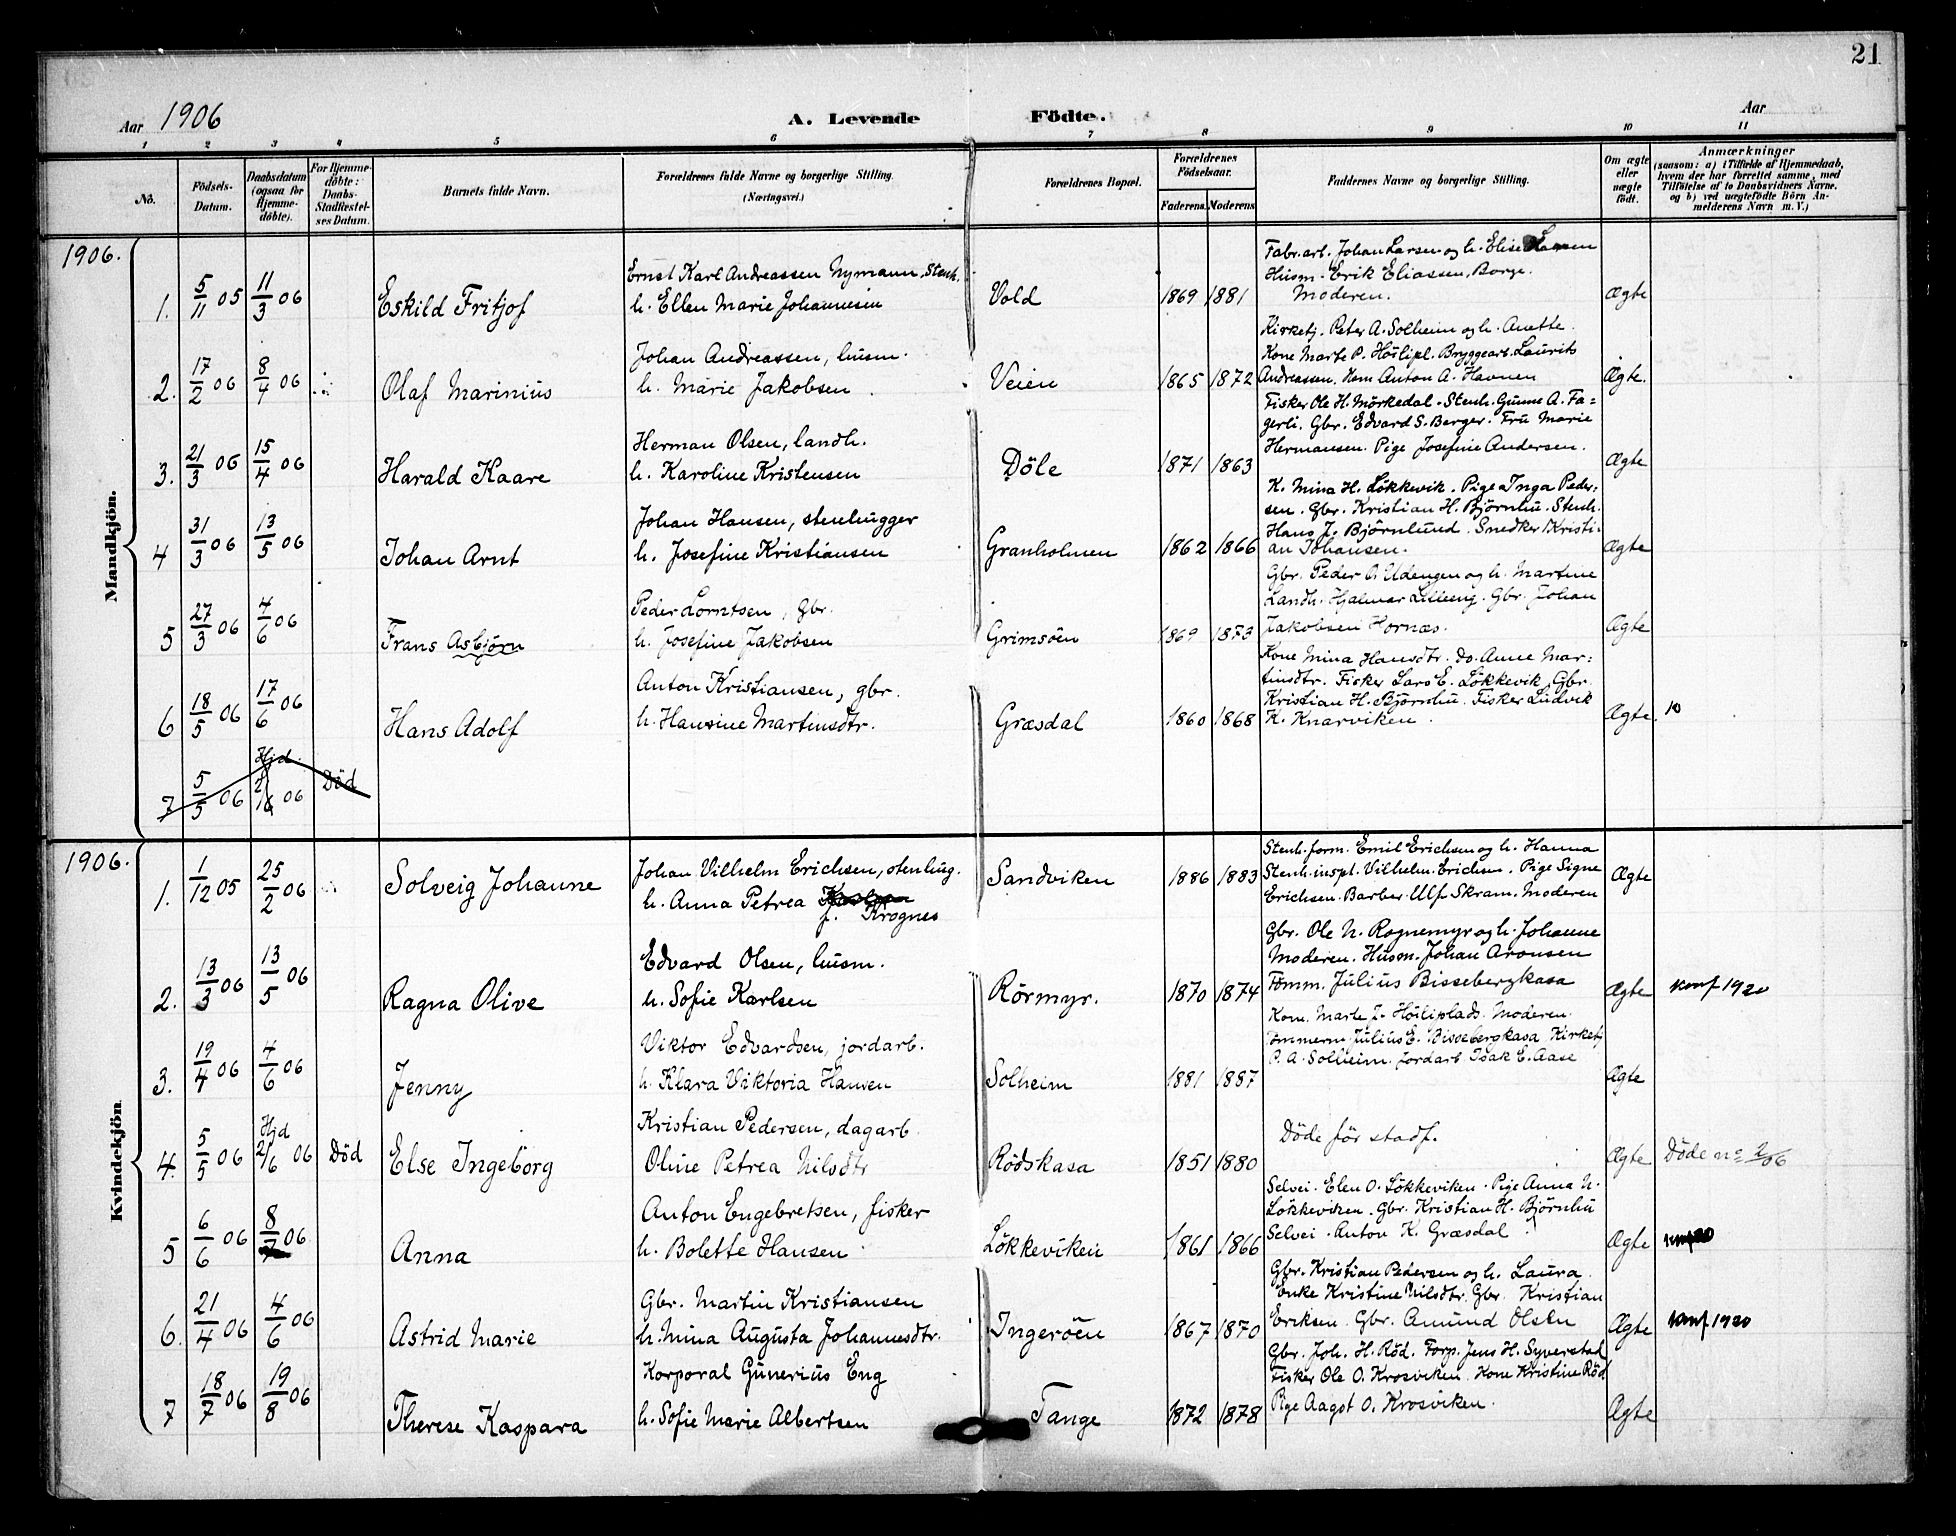 21
Aar 1906
A. Levende Födte.
Aar
1 2 3 4 5 6 7 8 9 10 11
No.
Födsels-
Datum.
Daabsdatum
(ogsaa for
Hjemme-
döbte).
For Hjemme-
döbte:
Daabs-
Stadfæstel-
ses Datum.
Barnets fulde Navn.
Forældrenes fulde Navne og borgerlige Stilling.
(Næringsvei.)
Forældrenes Bopæl.
Forældrenes
Födselsaar.
Faderens. Moderens.
Faddernes Navne og borgerlige Stilling.
Om ægte
eller
uægte
født.
Anmærkninger
(saasom: a) i Tilfælde af Hjemmedaab,
hvem der har forrettet samme, med
Tilföielse af to Daabsvidners Navne.
og b) ved uægtefödte Börn An-
melderens Navn m. V.)
1906.
Mandkjön.
Fabr.arb. Johan Larsen og h. Elise Larsen
Ernst Karl Andreassen Nymann, Stenh.
Husm. Erik Eliassen, Borge.
1. 5/11 05 11/3 06 Eskild Fritjof h. Ellen Marie Johannesen Vold 1869 1881 Moderen. Ægte
Kirketj. Peter A. Solheim og h. Anette.
Johan Andreassen, husm.
Kone Marte P. Höilipl. Bryggearb. Laurits
2. 17/2 06 8/4 06 Olaf Marinius h. Marie Jakobsen Veien 1865 1872 Andreassen. Anton A. Havnen Ægte.
Fisker Ole H. Mörkedal. Stenh. Gunne A. Fa=
gerli. Gbr. Edvard S. Berger. Fru Marie
Herman Olsen, landh.
3. 21/3 06 15/4 06 Harald Kaare h. Karoline Kristensen Döle 1871 1863 Hermansen. Pige Josefine Andersen. Ægte
K. Mina H. Lökkevik. Pige Inga Peder=
sen. Gbr. Kristian H. Björnhu. Stenh.
Johan Hansen, stenhugger
Hans J. Björnlund. Snedker Kristi-
4 31/3 06 13/5 06 Johan Arnt h. Josefine Kristiansen Granholmen 1862 1866 an Johansen. Ægte
Gbr. Peder A. Udengen og h. Martine
Landh. Hjalmar Lilleeng. Gbr. Johan
Peder Lorntsen, Gbr.
5 27/3 06 4/6 06 Frans Asbjörn h. Josefine Jakobsen Grimsöen 1869 1873 Jakobsen Hornæs. Ægte
Kone Mina Hansdtr. do. Anne Mar=
tinsdtr. Fisker Lars E. Lökkevik, Gbr.
Anton Kristiansen, gbr.
Kristian H. Björnhu. Fisker Ludvik
6 18/5 06 17/6 06 Hans Adolf h. Hansine Martinsdtr. Græsdal 1860 1868 K. Knarviken. Ægte. 10
Hjd.
7 5/5 06 2/6 06 Död
1906.
Kvindekjön
Stenh.form. Emil Erichsen og h. Hanna
Johan Vilhelm Erichsen, stenhug.
Stenh.inspt. Vilhelm Erichsen. Pige Signe
1. 1/12 05 25/2 06 Solveig Johanne h. Anna Petrea Sandviken 1886 1883 Erichsen. Barber Ulf Skram. Moderen Ægte
f. Krognes
Gbr. Ole N. Rognemyr og h. Johanne
Edvard Olsen, husm.
Moderen. Husm. Johan Aronsen
2. 13/3 06 13/5 06 Ragna Olive h. Sofie Karlsen Rörmyr. 1870 1874 Tömm. Julius Bissebergkasa Ægte Konf 1920
Kone. Marte J. Höiliplads. Moderen.
Viktor Edvardsen, jordarb.
Tömmerm. Julius E. Bissebergkasa Kirketj
P. A. Solheim. Jordarb Isak E. Aase
3. 19/4 06 4/6 06 Jenny h. Klara Viktoria Hansen Solheim 1881 1887 Ægte
Kristian Pedersen, dagarb.
Hjd
Döde för stadf.
4. 5/5 06 2/6 06 Död Else Ingeborg Oline Petrea Nilsdtr Rödskasa 1851 1880 Ægte Döde no 2/06
Selvei. Elen O. Lökkeviken. Pige Anna N.
Anton Engebretsen, fisker
Lökkeviken. Gbr. Kristian H. Björnhu
5 6/6 06 8/7 06 Anna h. Bolette Hansen Lökkeviken 1861 1866 Selvei. Anton K. Græsdal Ægte
Gbr. Kristian Pedersen og h. Laura
Gbr. Martin Kristiansen
Enke Kristine Nilsdtr. Gbr. Kristian
6. 21/4 06 4/6 06 Astrid Marie h. Mina Augusta Johannesdtr. Ingeröen 1867 1870 Eriksen. Gbr. Amund Olsen Ægte Konf 1920
Gbr. Joh. H. Röd. Forp. Jens H. Syverstad
Korporal Gunerius Eng
Fisker Ole O. Krosviken. Kone Kristine Röd.
7 18/7 06 19/8 06 Therese Kaspara h. Sofie Marie Albertsen Tange 1872 1878 Pige Aagot O. Krosviken. Ægte